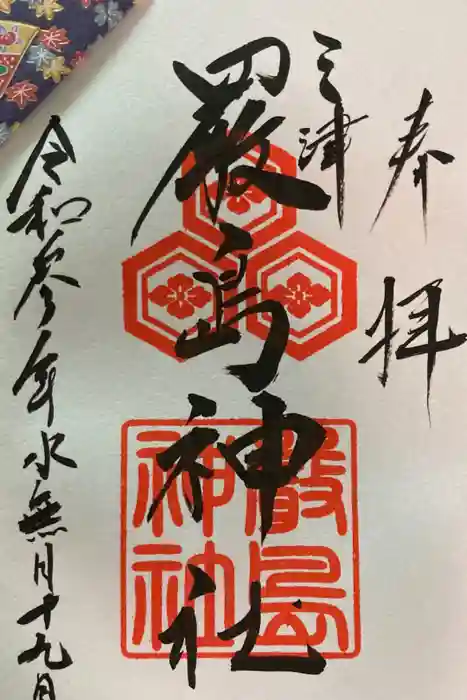 奉拝
三津
厳島神社
厳島神社
令和参年水無月十九日